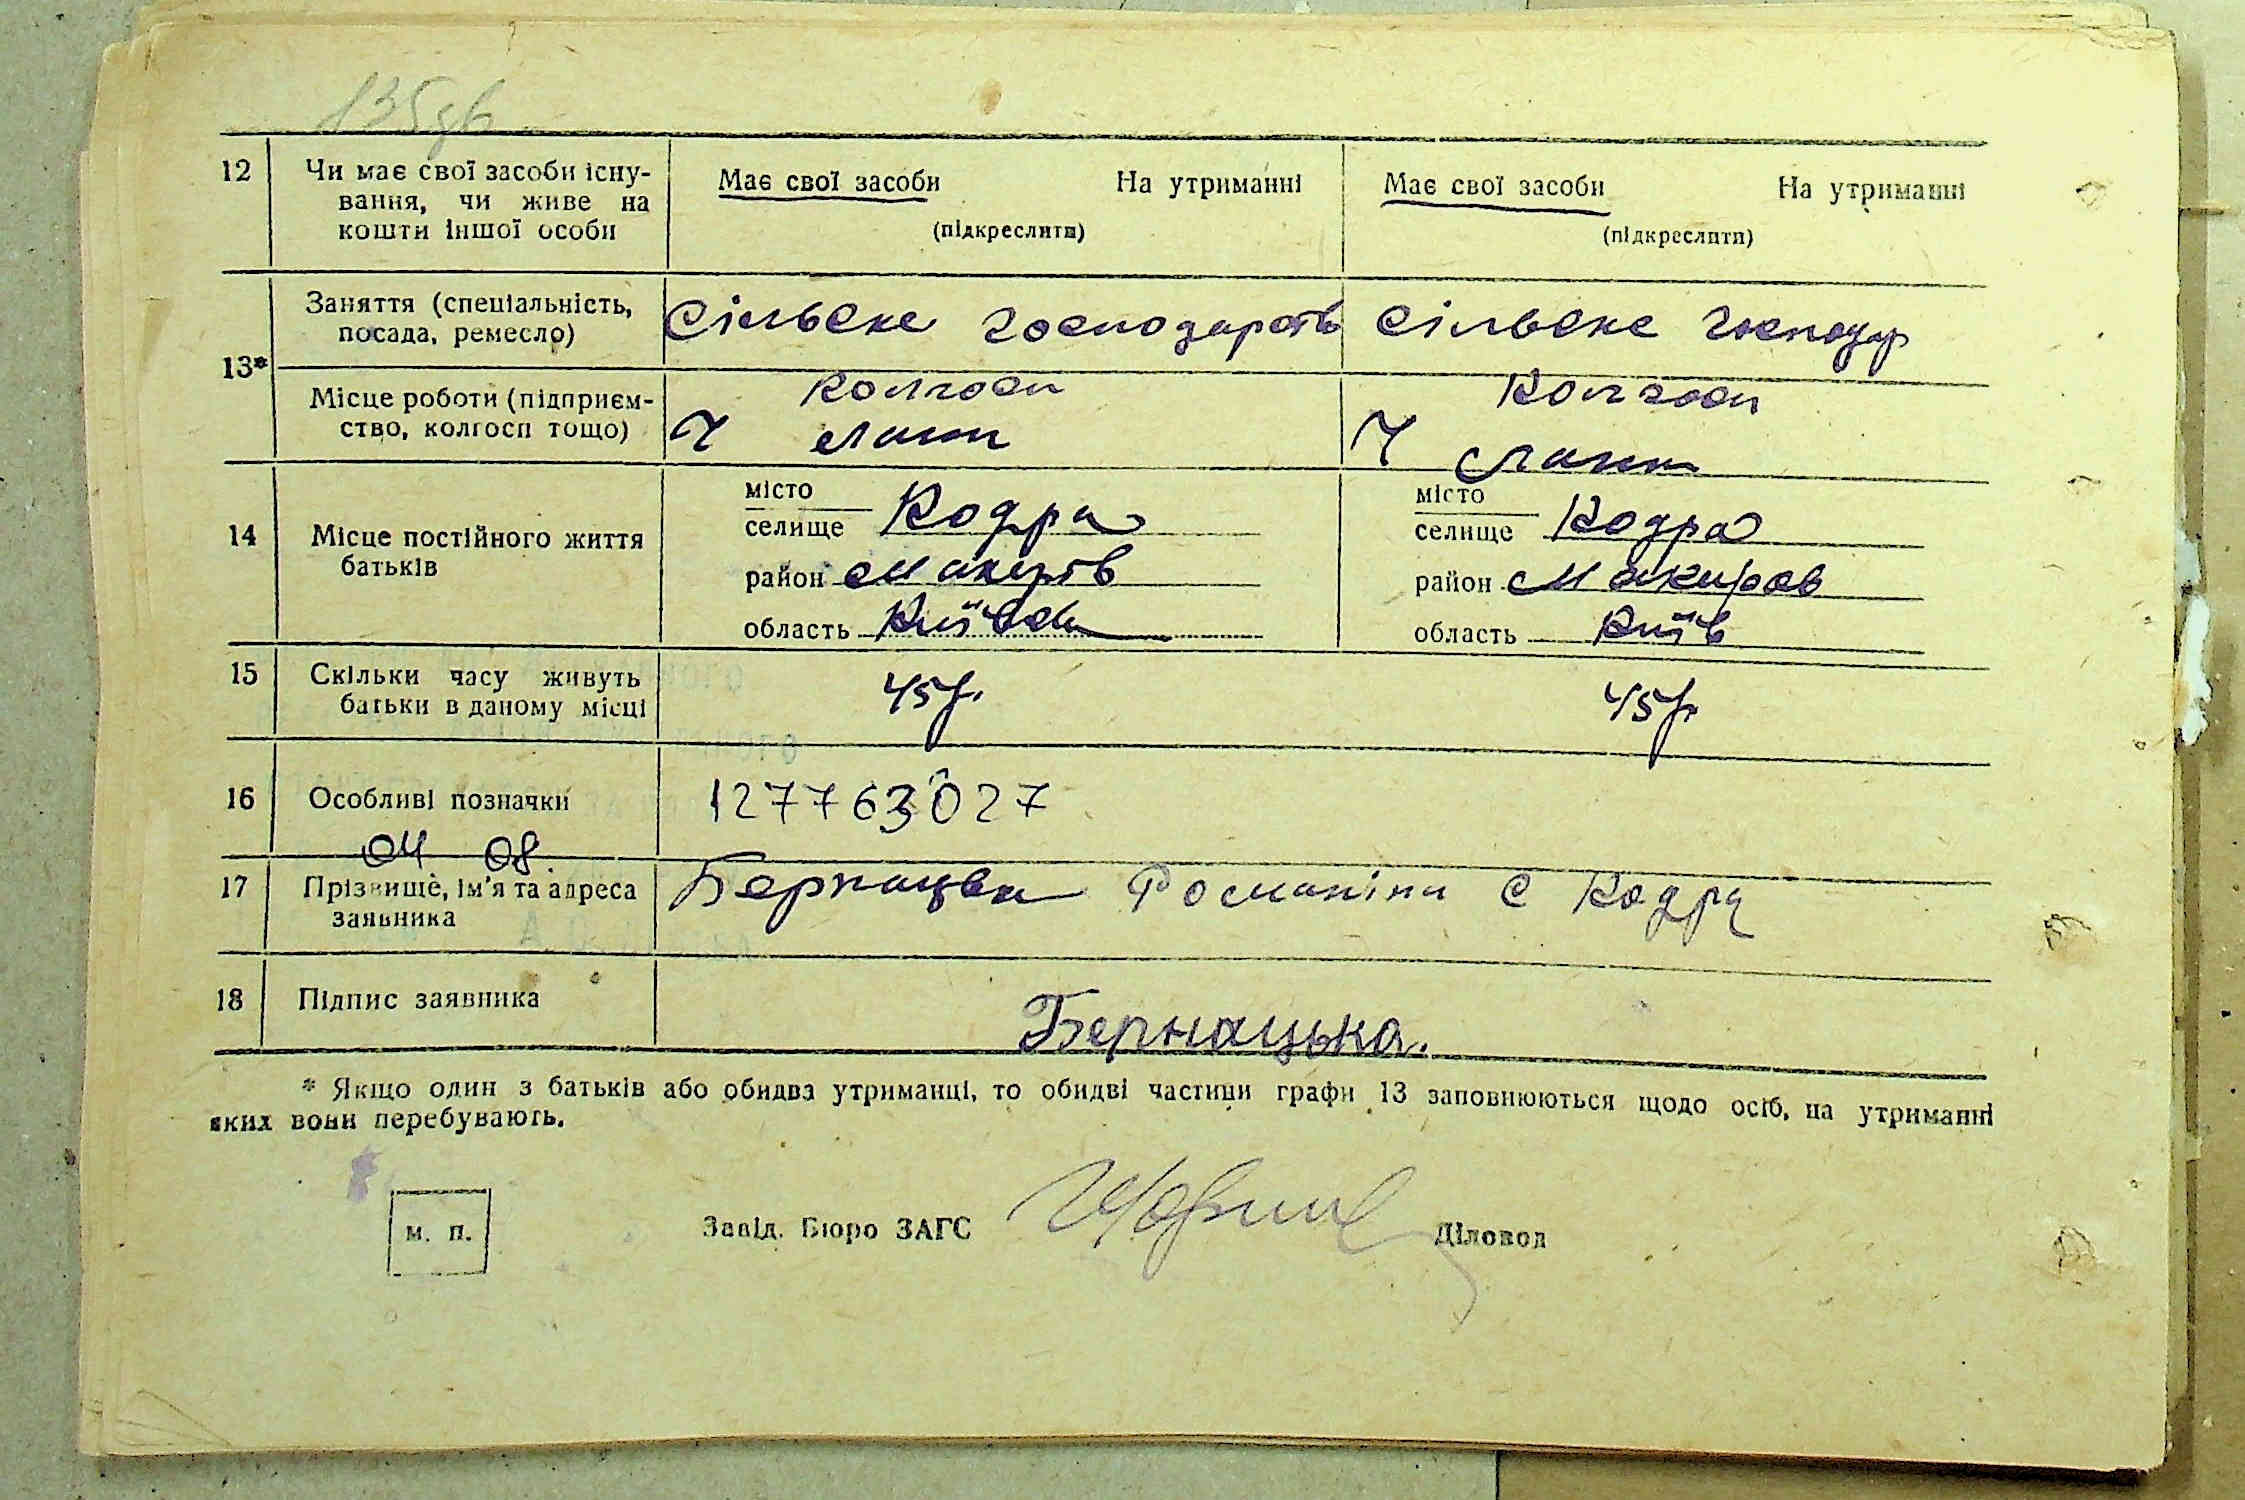 135зв
12 Чи має свої засоби існу- Має свої засоби На утриманні Має свої засоби На утриманні
вання, чи живе на
кошти іншої особи (підкреслити) (підкреслити)
Заняття (спеціальність, Сільске господарств Сільске господар
посада, ремесло)
13*
Місце роботи (підприєм- Колгосп Колгосп
ство, колгосп тощо) У лани У лани
14 Місце постійного життя батьків
місто місто
селище Кодра селище Кодра
район Макарів район Макаров
область Київськ область Київ
15 Скільки часу живуть 45р. 45р.
батьки в даному місці
16 Особливі позначки 127763027
04 08
17 Прізвище, ім'я та адреса Бернацька Романіна с Кодра
заявника
18 Підпис заявника Бернацька.
* Якщо один з батьків або обидва утриманці, то обидві частини графи 13 заповнюються щодо осіб, на утриманні
яких вони перебувають.
м. п. Завід. Бюро ЗАГС Діловод